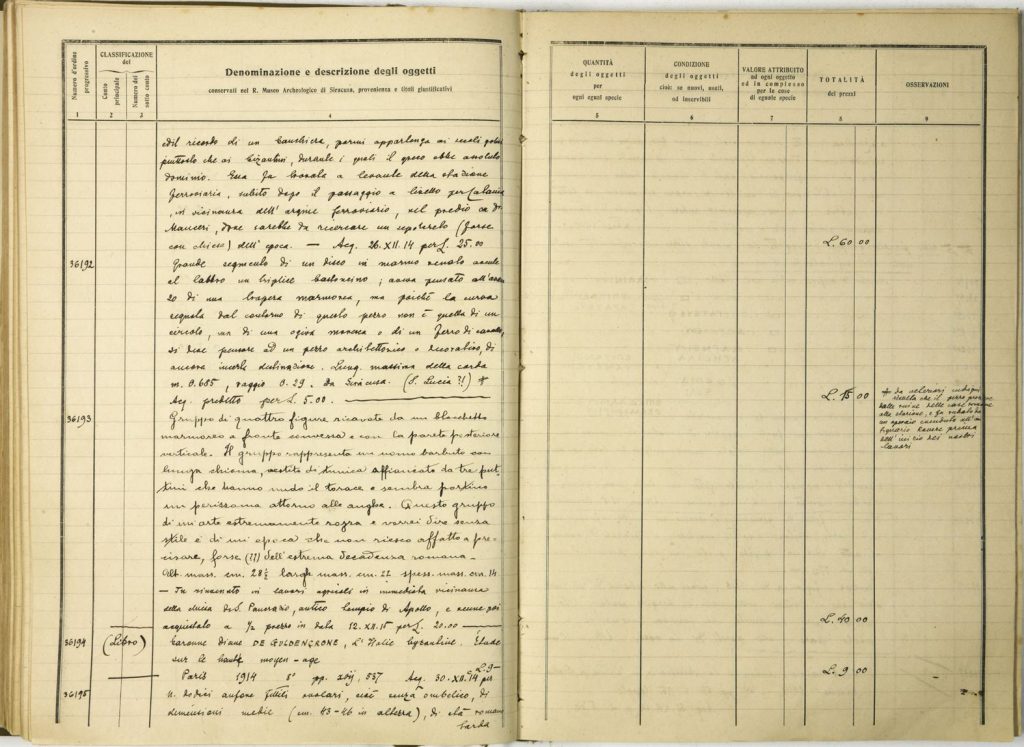 Numero d'ordine progressivo
CLASSIFICAZIONE
del
Conto principale
Numero del sotto conto
Denominazione e descrizione degli oggetti
conservati nel R. Museo Archeologico di Siracusa, provenienza e titoli giustificativi
1 2 3 4
ricordo di un banchiere, parmi appartenga ai secoli
piuttosto che ai bizantini, durante i quali il greco ebbe assoluto
dominio. Essa fu trovata a levante della stazione
ferroviaria, subito dopo il passaggio a livello per Catania
, in vicinanza dell'argine ferroviario, nel predio
Mauceri, dove sarebbe da ricercare un sepolcreto (forse
con chiesa) dell'epoca. — Acq. 26.XII.14 per L. 25.00
36192
Grande segmento di un disco in marmo venato avente
al labbro un triplice bastoncino; avevo pensato all'
di una marmorea, ma poichè la curva
segnata dal contorno di questo pezzo non è quella di un
circolo, ma di una ogiva moresca o di un ferro di cavallo,
si deve pensare ad un pezzo architettonico o decorativo, di
ancora incerta destinazione. Lung. massima della corda
m. 0.685, raggio 0.29. Da Siracusa. (S. Lucia ?!) +
Acq. per L. 5.00.
36193
Gruppo di quattro figure ricavato da un blocchetto
marmoreo a fronte convessa e con la parete posteriore
verticale. Il gruppo rappresenta un uomo barbuto con
lunga chioma, vestito di tunica affiancato da tre put-
tini che hanno nudo il torace e sembra portino
un perizoma attorno alle anche. Questo gruppo
di un'arte estremamente rozza e vorrei dire senza
stile è di un'epoca che non riesco affatto a pre-
cisare, forse (??) dell'estrema decadenza romana-
Alt. mass. cm. 28½ largh. mass. cm. 22 spess. mass. cm. 14
— Fu rinvenuto in lavori agricoli in immediata vicinanza
della chiesa di S. Pancrazio, antico tempio di Apollo, e venne poi
acquistato a ½ prezzo in data 12.XII.15 per L. 20.00
36194
(Libro)
baronne Diane DE GULDENCRONE, L'Italie byzantine. Étude
sur le haut moyen-age
Paris 1914 8° pp. 537 Acq. 30.XII.14 per L. 9-
36195
N. dodici anfore fittili, cioè senza ombelico, di
dimensioni medie (cm. 43-46 in altezza), di età romana
tarda
QUANTITÀ
degli oggetti
per
ogni egual specie
CONDIZIONE
degli oggetti
cioè: se nuovi, usati,
od inservibili
VALORE ATTRIBUITO
ad ogni oggetto
ed in complesso
per le cose
di eguale specie
TOTALITÀ
dei prezzi
OSSERVAZIONI
5 6 7 8 9
L. 60 00
L. 15 00
+ Da ulteriori indagini
risulta che il pezzo proviene
dalle rovine delle case romane
alla stazione, e fu rubato da
un operaio
prima
dell'inizio dei nostri
lavori
L. 40 00
L. 9 00